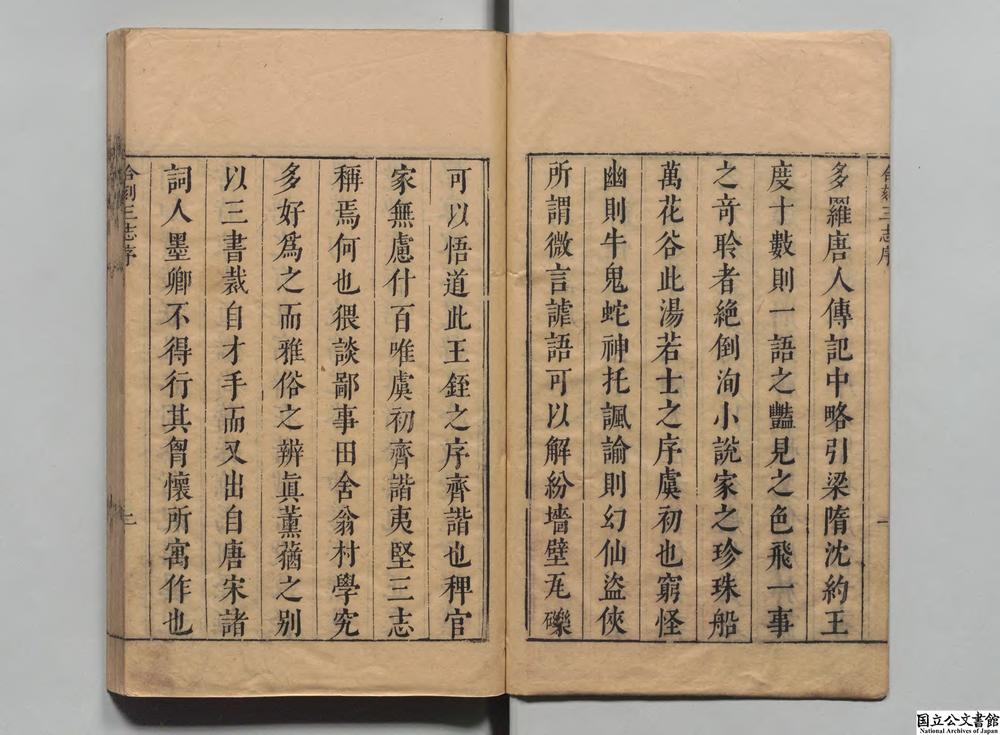 合刻三志序
一
多羅唐人傳記中略引梁隋沈約王
度十數則一語之豔見之色飛一事
之奇聆者絕倒洵小說家之珍珠船
萬花谷此湯若士之序虞初也窮怪
幽則牛鬼蛇神托諷諭則幻仙盜俠
所謂微言謔語可以解紛墻壁瓦礫
可以悟道此王銍之序齊諧也稗官
家無慮什百唯虞初齊諧夷堅三志
稱焉何也猥談鄙事田舍翁村學究
多好爲之而雅俗之辨眞薰蕕之别
以三書裁自才手而又出自唐宋諸
詞人墨卿不得行其胷懷所寓作也
合刻三志序
二
国立公文書館
National Archives of Japan